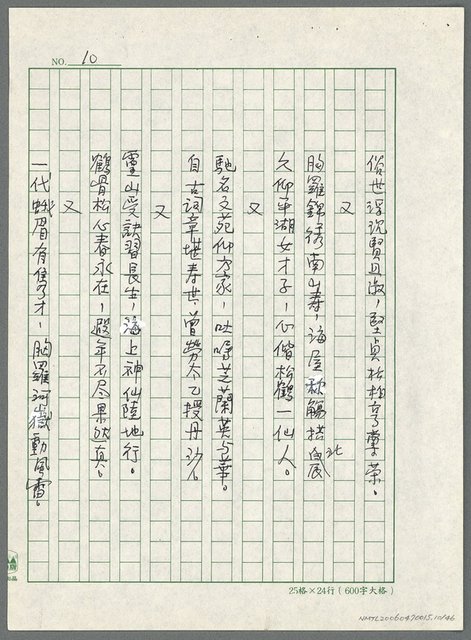 NO. 10
俗世浮說賢且淑，堅貞松柏亨業榮。
又
胸羅錦綉南山壽，海屋秋觴拱北辰
久仰平湖女才子，心偕松鶴一仙人。
又
馳名文苑仰方家，吐嚼芝蘭英与華。
自古詞章堪春世，曾勞太乙授丹沙。
又
靈山受訣習長生，海上神仙陸地行。
鶴骨松心春永在，遐年不尽果然真。
又
一代蛾眉有雋才，胸羅河嶽動風雷。
25格×24行（600字大格）
NMTL20060470015.10/46